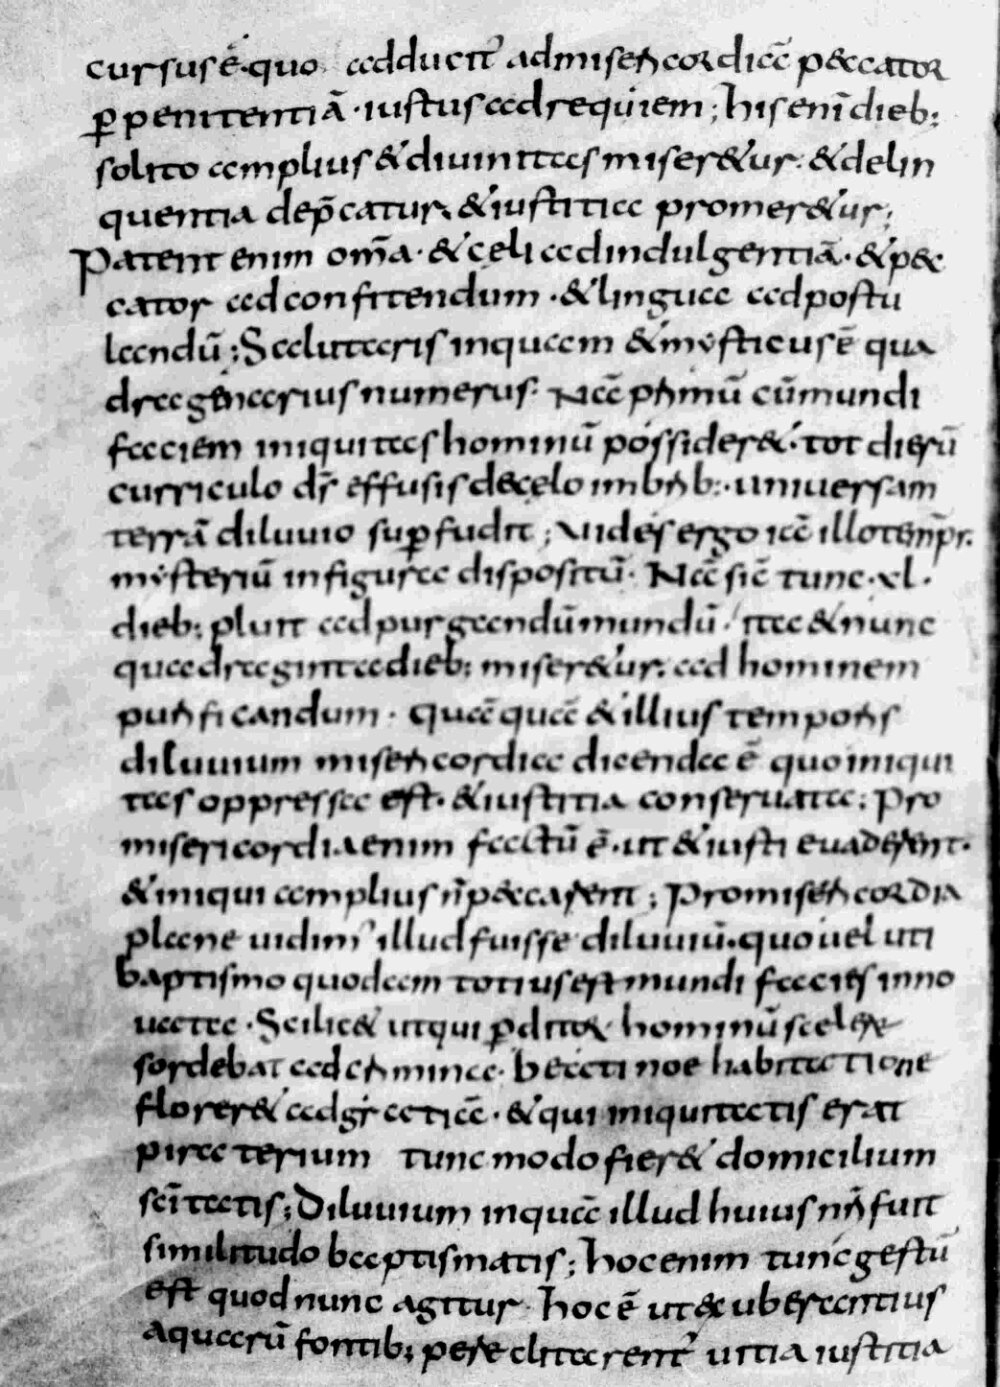 cursus ē· quo adducit᷒ ad misericordiā peccator
ꝑ penitentiā · iustus ad requiem ; his enī dieb:
solito amplius & diuinitas miser&ur · & delin
quentia dep̄catur · & iustitia promer&ur ;
Patent enim om̄a · & cęli ad indulgentiā · & pec
cator ad confitendum · & lingua ad postu
landū ; Salutaris inquam & mysticus ē qua
dragenarius numerus · Nā primū cū mundi
faciem iniquitas hominū possider& · tot dierū
curriculo dr̄ effusis de cęlo imbrib: · uniuersam
terrā diluuio suꝑfudit ; Vides ergo iā illo temp̄r.
mysteriū in figura dispositū · Nā sic̄ tunc · xl ·
dieb: pluit ad purgandū mundū / ita & nunc
quadraginta dieb: miser&ur · ad hominem
purificandum · quāquā & illius temporis
diluuium misericordia dicenda ē quo iniqui
tas oppressa est · & iustitia conseruata ; Pro
misericordia enim factū ē · ut & iusti euaderent ·
& iniqui amplius n̄ peccarent ; Pro misericordia
plane uidim᷒ illud fuisse diluuiū · quo uel uti
baptismo quodam totius est mundi facies inno
uata · Scilic& ut qui ꝑditor hominū scelere
sordebat ad crimina · beati noe habitatione
florer& ad gr̄atiā · & qui iniquitatis erat
piraterium tunc modo fier& domicilium
scītatis ; Diluuium inquā illud huius nr̄i fuit
similitudo baptismatis ; hoc enim tunc gestū
est quod nunc agitur · hoc ē ut exuberantius
aquarū fontib: pereclitarent᷒ uitia iustitia